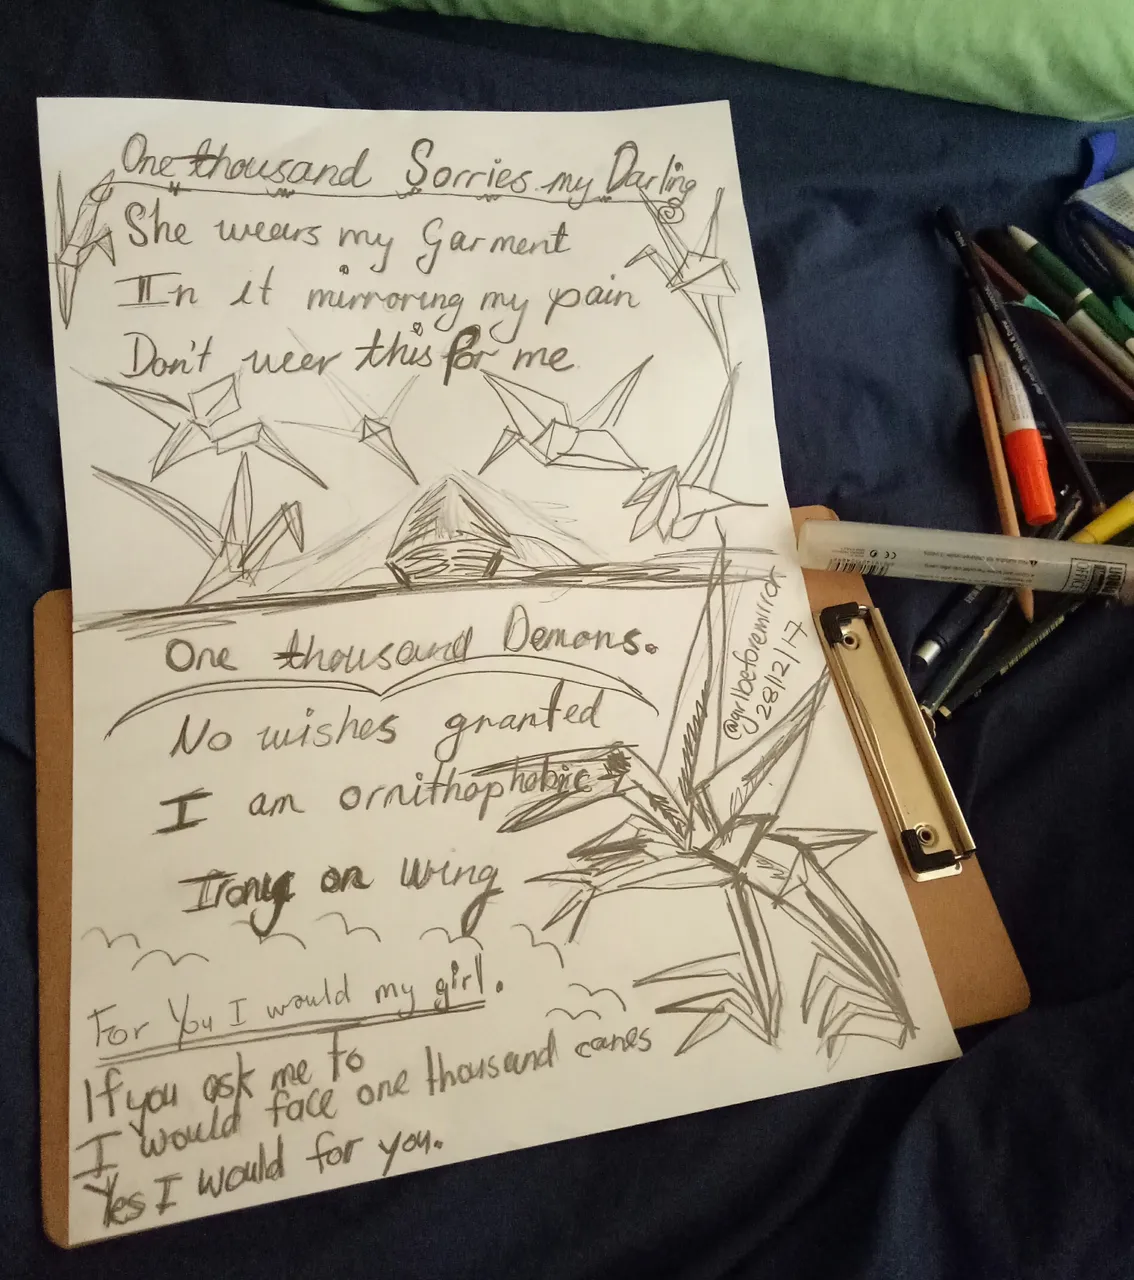 One thousand Sorries my Darling
She wears my Garment
In it mirroring my pain
Don't weer this for me
One thousand Demons.
No wishes granted
I am ornithophobic
Irony on wing
For You I would my girl.
If you ask me to
I would face one thousand canes
Yes I would for you.
@girlbeforemirror
28/12/17